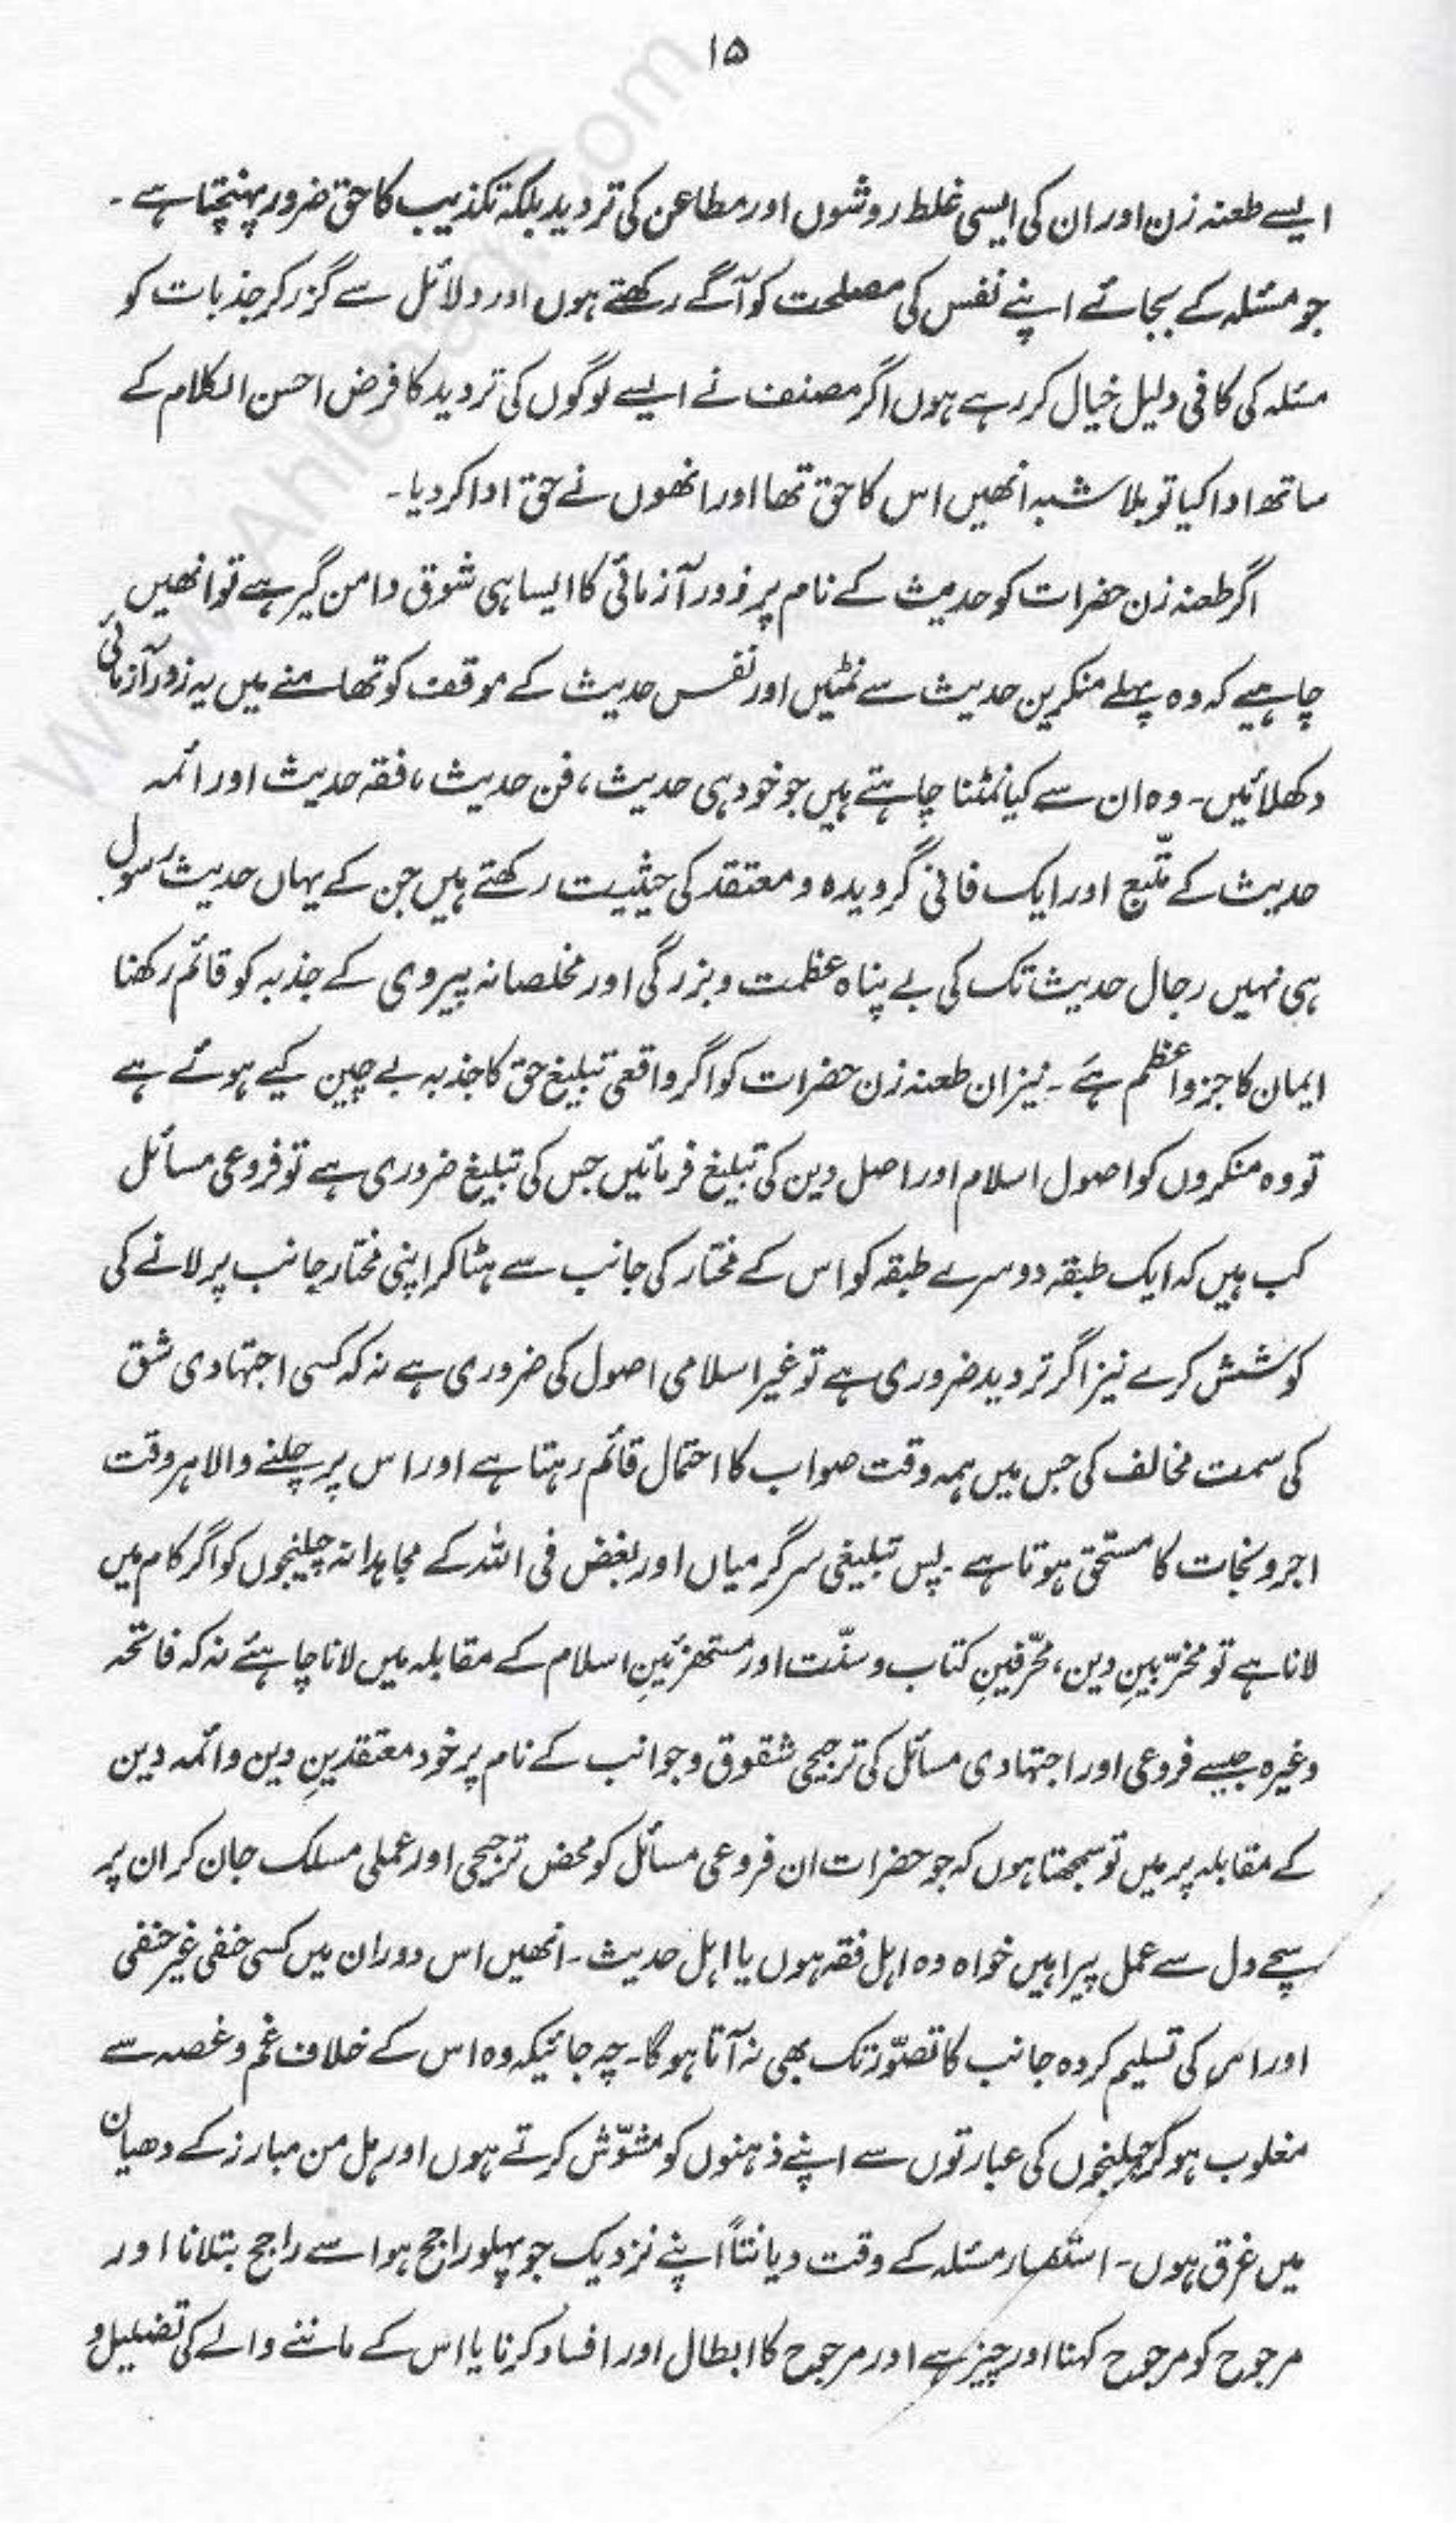 ۱۵
ایسے طعنہ زن اور ان کی ایسی غلط روشوں اور مطاعن کی تردید بلکہ تکذیب کا حق ضرور پہنچتا ہے ۔
جو مسئلہ کے بجائے اپنے نفس کی مصلحت کو آگے رکھتے ہوں اور دلائل سے گزر کر جذبات کو
مسئلہ کی کافی دلیل خیال کر رہے ہوں اگر مصنف نے ایسے لوگوں کی تردید کا فرض احسن الکلام کے
ساتھ ادا کیا تو بلا شبہ انھیں اس کا حق تھا اور انھوں نے حق ادا کر دیا ۔
اگر طعنہ زن حضرات کو حدیث کے نام پر زور آزمائی کا ایسا ہی شوق دامن گیر ہے تو انھیں
چاہیے کہ وہ پہلے منکرین حدیث سے نمٹیں اور نفس حدیث کے موقف کو تھامنے میں یہ زور آزمائی
دکھلائیں ۔ وہ ان سے کیا نمٹنا چاہتے ہیں جو خود ہی حدیث ، فن حدیث ، فقہ حدیث اور ائمہ
حدیث کے متّبع اور ایک فانی گرویدہ و معتقد کی حیثیت رکھتے ہیں جن کے یہاں حدیث رسول
ہی نہیں رجال حدیث تک کی بے پناہ عظمت و بزرگی اور مخلصانہ پیروی کے جذبہ کو قائم رکھنا
ایمان کا جزو اعظم ہے ۔ نیز ان طعنہ زن حضرات کو اگر واقعی تبلیغ حق کا جذبہ بے چین کیے ہوئے ہے
تو وہ منکروں کو اصول اسلام اور اصل دین کی تبلیغ فرمائیں جس کی تبلیغ ضروری ہے تو فروعی مسائل
کب ہیں کہ ایک طبقہ دوسرے طبقہ کو اس کے مختار کی جانب سے ہٹا کر اپنی مختار جانب پر لانے کی
کوشش کرے نیز اگر تردید ضروری ہے تو غیر اسلامی اصول کی ضروری ہے نہ کہ کسی اجتہادی شق
کی سمت مخالف کی جس میں ہمہ وقت صواب کا احتمال قائم رہتا ہے اور اس پر چلنے والا ہر وقت
اجر و نجات کا مستحق ہوتا ہے ۔ پس تبلیغی سرگرمیاں اور بغض فی اللہ کے مجاہدانہ چیلنجوں کو اگر کام میں
لانا ہے تو مخرّبینِ دین ، محرّفینِ کتاب و سنّت اور مستهزئینِ اسلام کے مقابلہ میں لانا چاہئے نہ کہ فاتحہ
وغیرہ جیسے فروعی اور اجتہادی مسائل کی ترجیحی شقوق و جوانب کے نام پر خود معتقدینِ دین و ائمہ دین
کے مقابلہ پر میں تو سمجھتا ہوں کہ جو حضرات ان فروعی مسائل کو محض ترجیحی اور عملی مسلک جان کر ان پر
سچے دل سے عمل پیرا ہیں خواہ وہ اہل فقہ ہوں یا اہل حدیث ۔ انھیں اس دوران میں کسی حنفی غیر حنفی
اور اس کی تسلیم کردہ جانب کا تصوّر تک بھی نہ آتا ہوگا ۔ چہ جائیکہ وہ اس کے خلاف غم و غصہ سے
مغلوب ہو کر چیلنجوں کی عبارتوں سے اپنے ذہنوں کو مشوّش کرتے ہوں اور ہل من مبارز کے دھیان
میں غرق ہوں ۔ استفسار مسئلہ کے وقت دیانتاً اپنے نزدیک جو پہلو راجح ہو اسے راجح بتلانا اور
مرجوح کو مرجوح کہنا اور چیز ہے اور مرجوح کا ابطال اور افساد کرنا یا اس کے ماننے والے کی تضلیل و